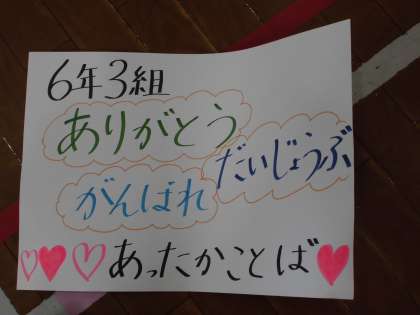 6年3組
ありがとう
だいじょうぶ
がんばれ
あったかことば